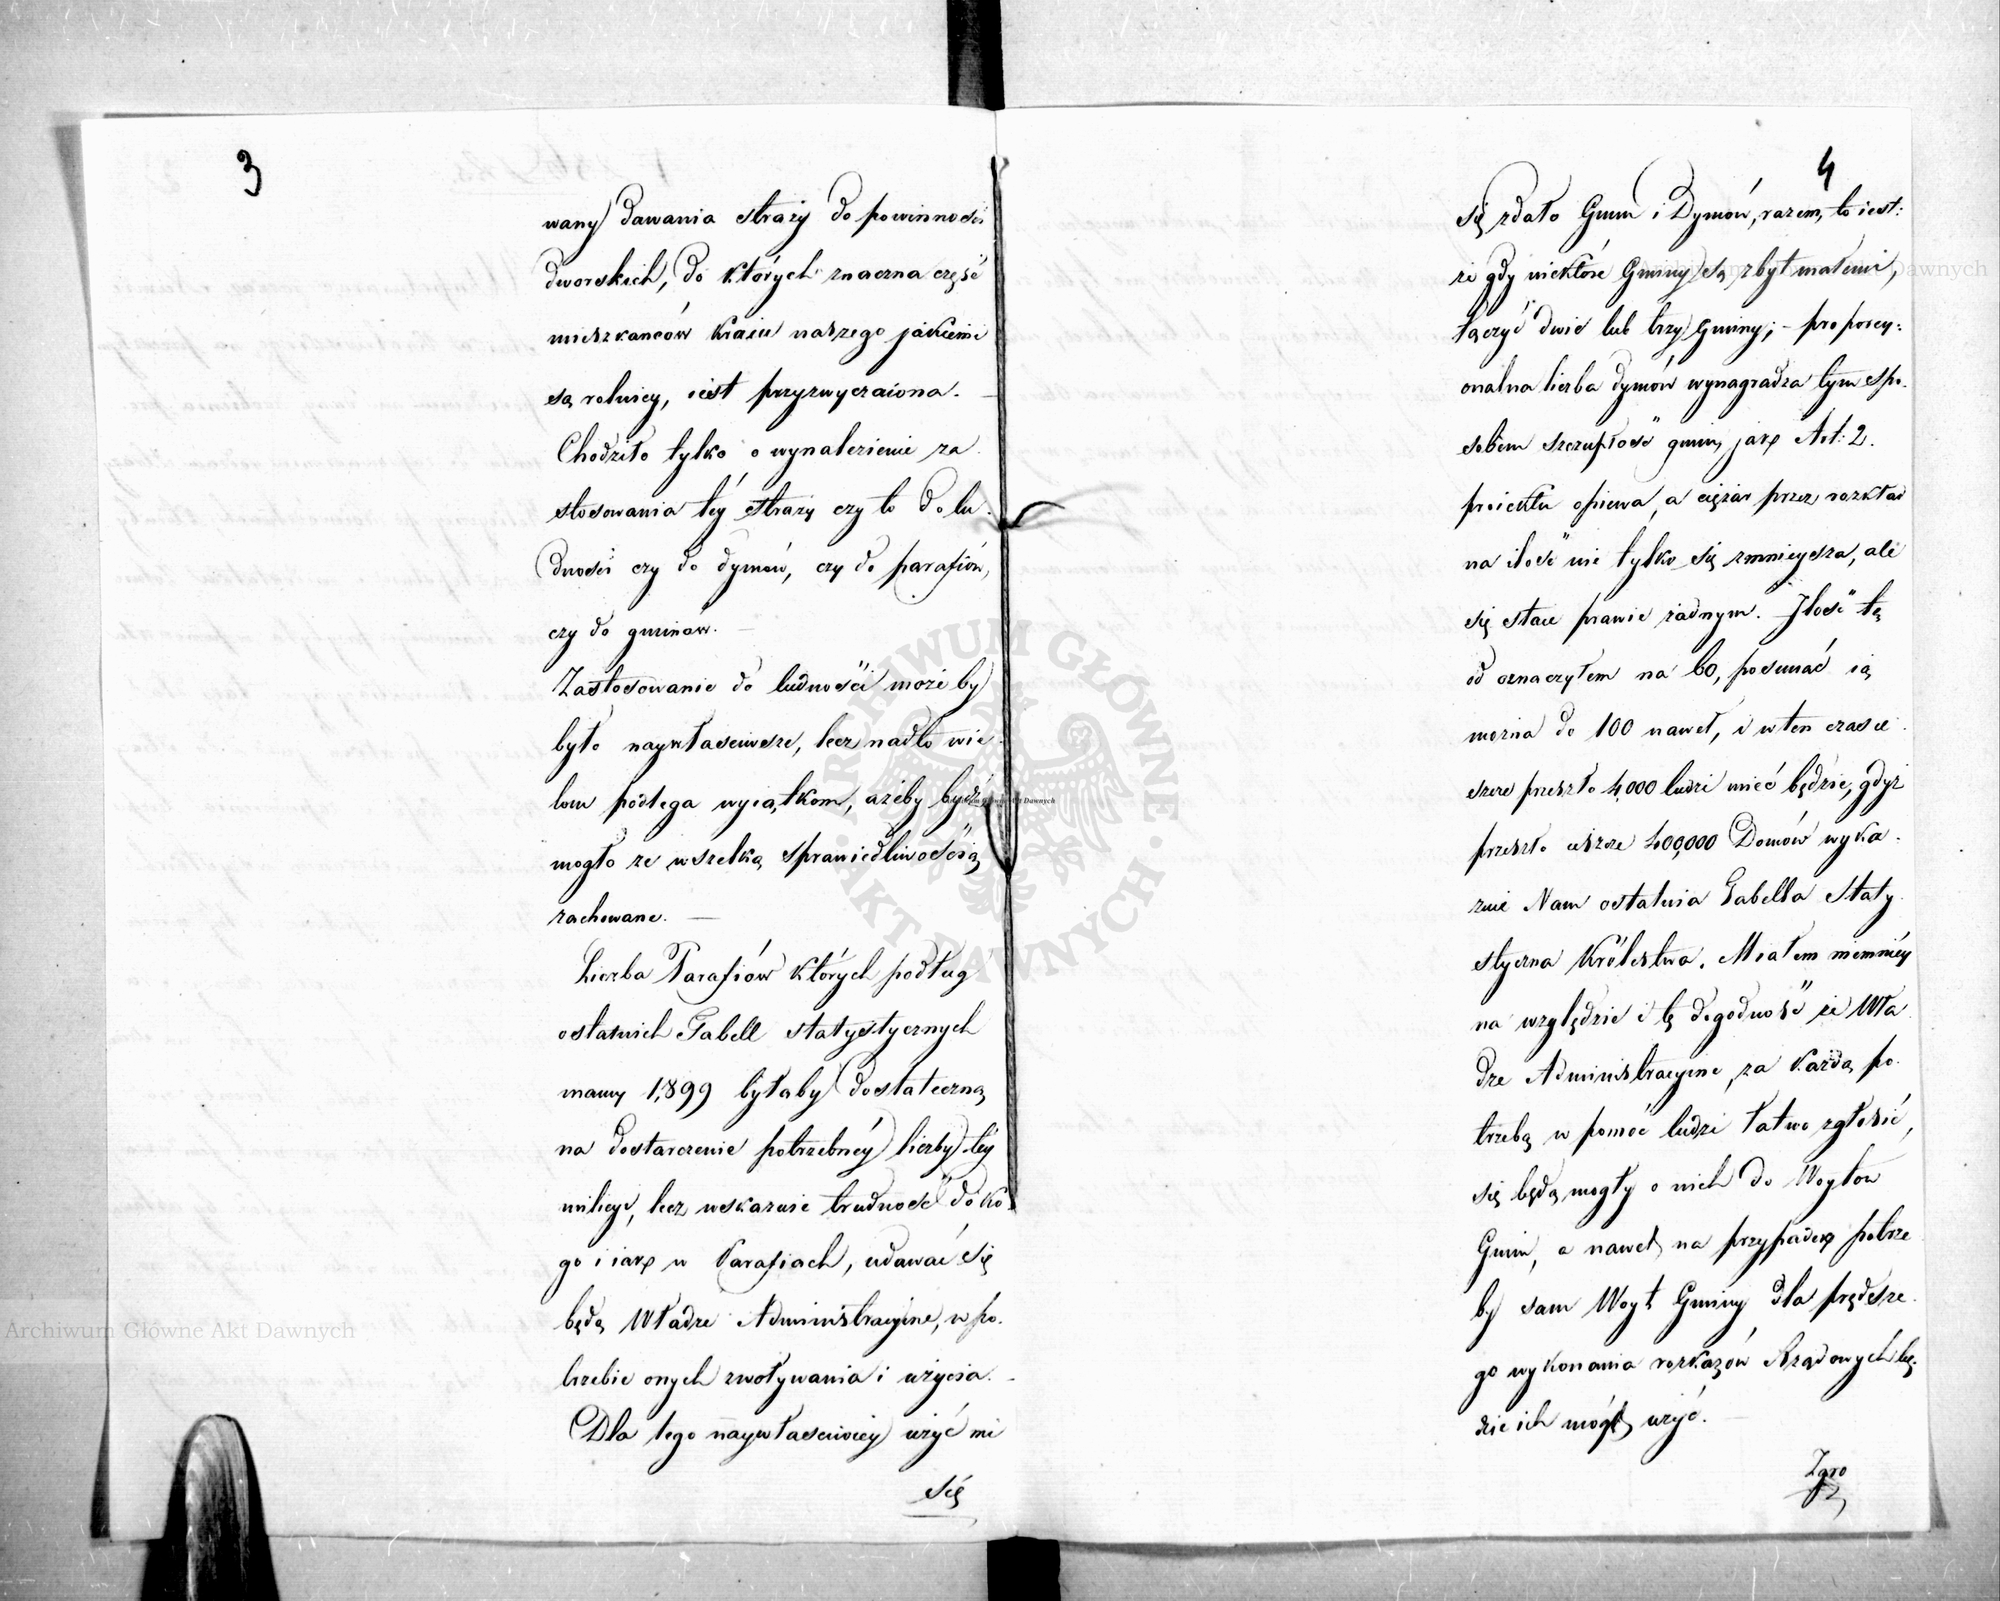 3
wany dawania straży do powinności
dworskich, do których znaczna część
mieszkanców Kraiu naszego jakiemi
są rolnicy, iest przyzwyczaiona. —
Chodziło tylko o wynalezienie za
stosowania téy straży czy to do lu
dności czy do dymów, czy do parafiów,
czy do gminów. —
Zastosowanie do ludności może by
było naywłaściwsze, lecz nadto wie
lom podlega wyiątkom, ażeby bydź
mogło ze wszelką sprawiedliwością
zachowane. —
Liczba Parafiów których podług
ostatnich Tabell statystycznych
mamy 1,899 byłaby dostateczną
na dostarczenie potrzebnéy liczby téy
milicyi, lecz wskazuie trudność do ko
go i iak w Parafiach, udawać się
będą Władze Administracyine, w po
trzebie onych zwoływania i użycia. —
Dla tego naywłaściwiey użyć mi
się
4
się zdało Gmin i Dymów, razem, to iest:
że gdy niektóre Gminy są zbyt małemi,
łączyć dwie lub trzy Gminy; – proporcy:
onalna liczba dymów wynagradza tym spo
sobem szczupłość gmin, jak Art: 2.
proiektu opiewa, a ciężar przez rozkład
na ilość nie tylko się zmnieysza, ale
się staie prawie żadnym. Ilość tę
od oznaczyłem na 60, posunąć ią
można do 100 nawet, i w ten czas ie
szcze przeszło 4,000 ludzi mieć będzie, gdyż
przeszło ieszcze 400,000 Domów wyka
zuie Nam ostatnia Tabella Staty
styczna Królestwa. Miałem niemniéy
na względzie i tę dogodność że Wła
dze Administracyine, za każdą po
trzebą w pomoc ludzi łatwo zgłosić,
się będą mogły o nich do Woytów
Gmin, a nawet na przypadek potrze
by sam Woyt Gminy dla prędsze
go wykonania rozkazów Rządowych bę
dzie ich mógł użyć. —
Zgro
Archiwum Główne Akt Dawnych
Archiwum Główne Akt Dawnych
Archiwum Główne Akt Dawnych
ARCHIWUM GŁÓWNE · AKT DAWNYCH ·